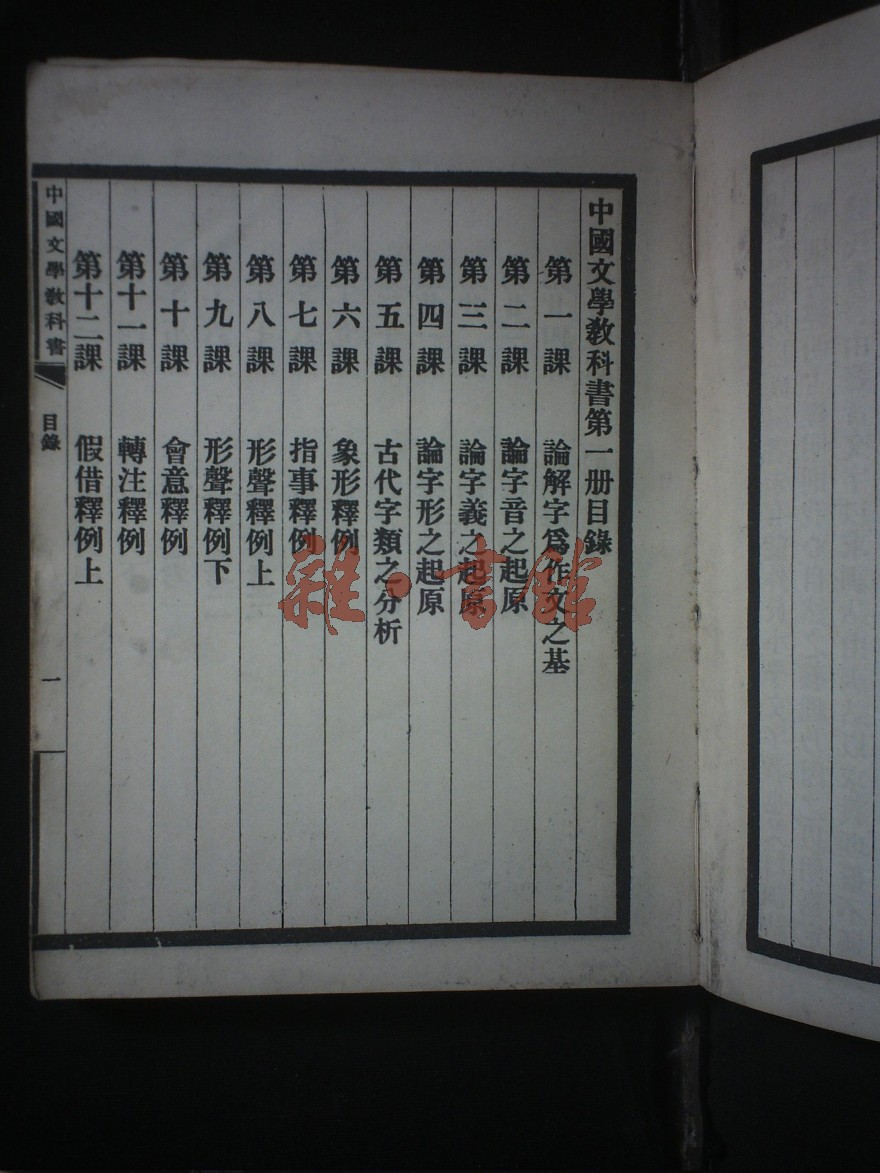 中國文學敎科書第一册目錄
第一課 論解字爲作文之基
第二課 論字音之起原
第三課 論字義之起原
第四課 論字形之起原
第五課 古代字類之分析
第六課 象形釋例
第七課 指事釋例
第八課 形聲釋例上
第九課 形聲釋例下
第十課 會意釋例
第十一課 轉注釋例
第十二課 假借釋例上
中國文學敎科書 目錄 一
雜·書館